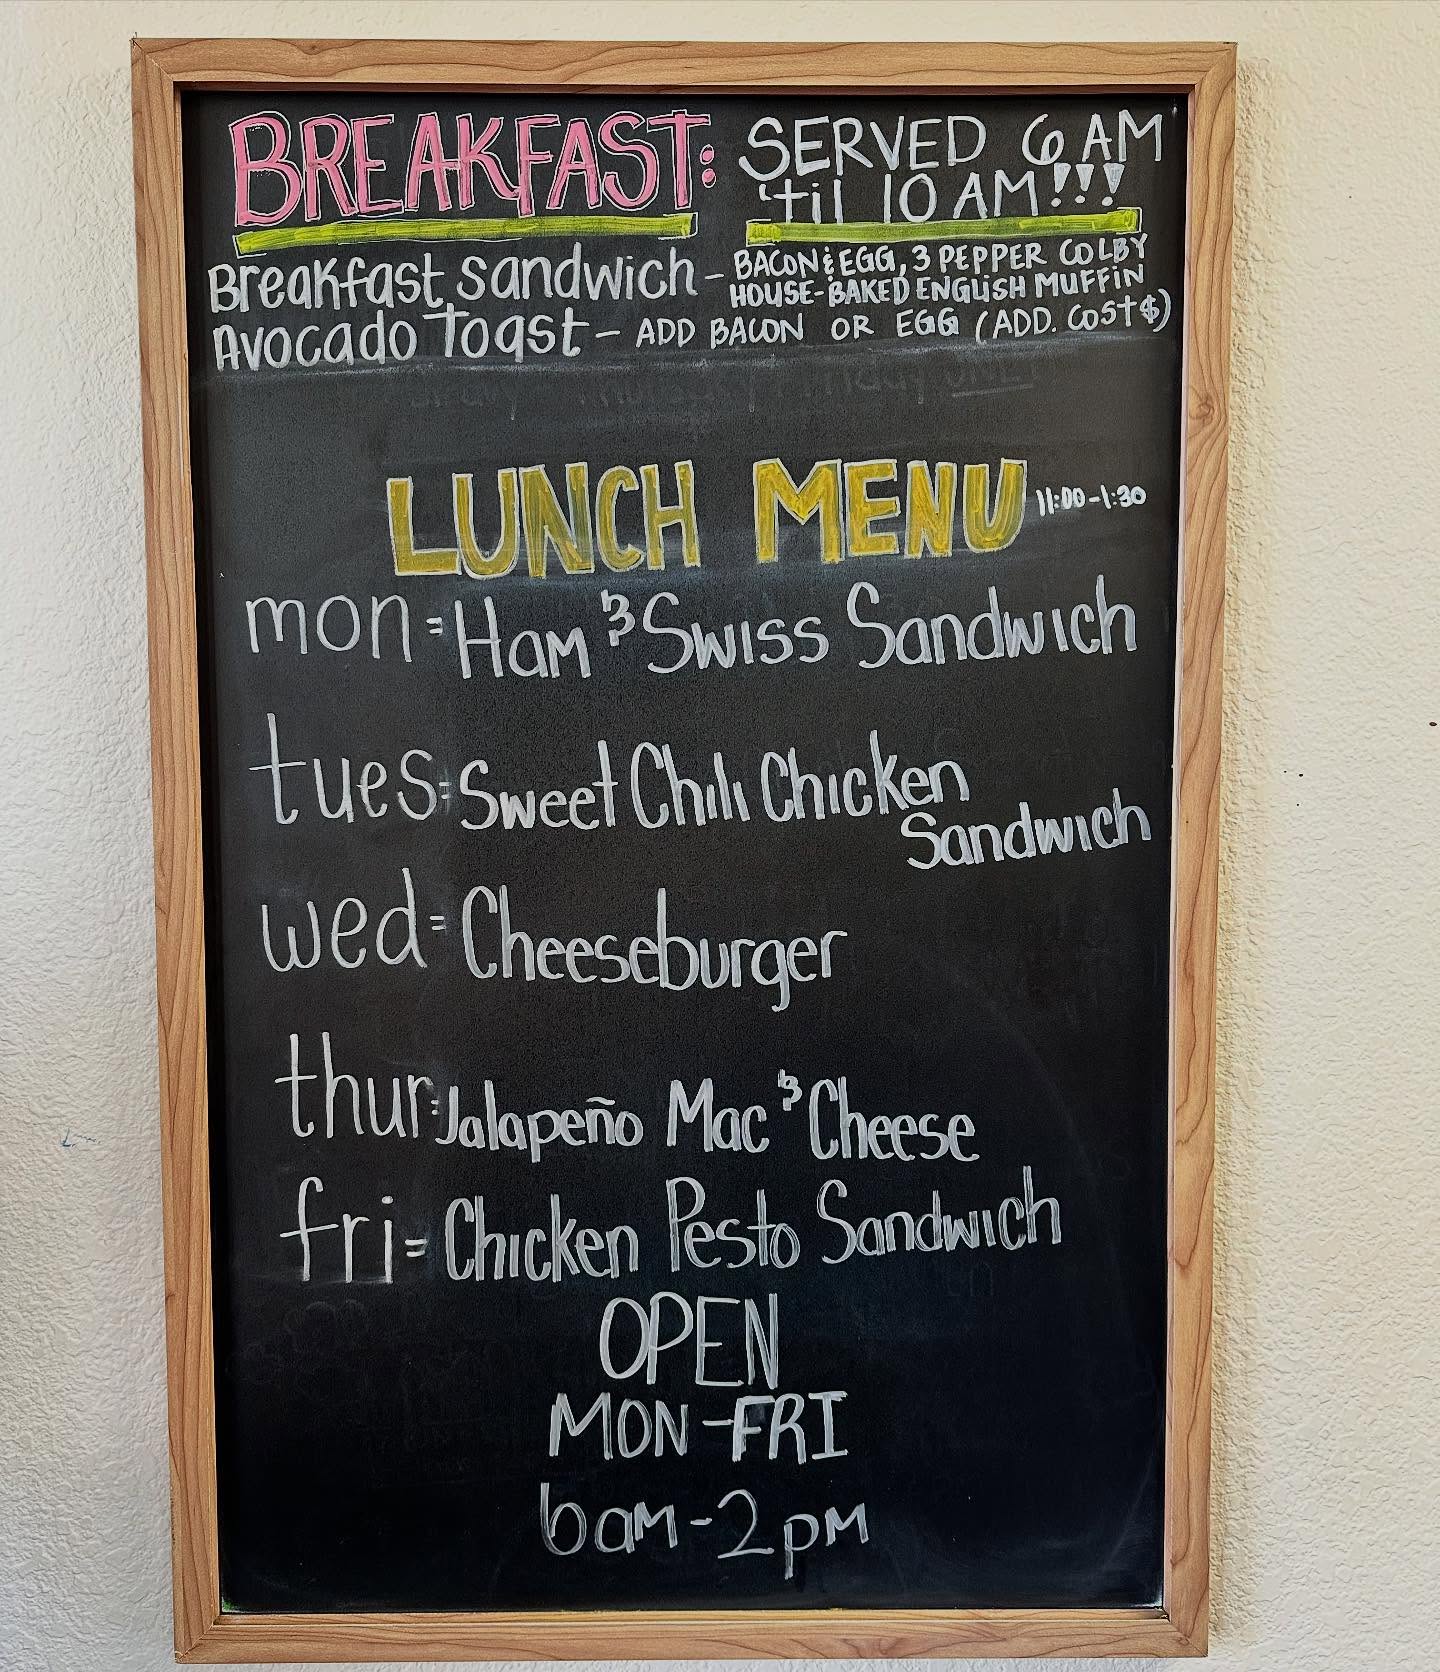 BREAKFAST: SERVED 6 AM
'til 10 AM!!!
Breakfast sandwich - BACON & EGG, 3 PEPPER COLBY
HOUSE-BAKED ENGLISH MUFFIN
Avocado Toast - ADD BACON OR EGG (ADD. COST $)
LUNCH MENU 11:00-1:30
mon= Ham & Swiss Sandwich
tues= Sweet Chili Chicken
Sandwich
wed= Cheeseburger
thur= Jalapeño Mac & Cheese
fri= Chicken Pesto Sandwich
OPEN
MON-FRI
6am-2pm